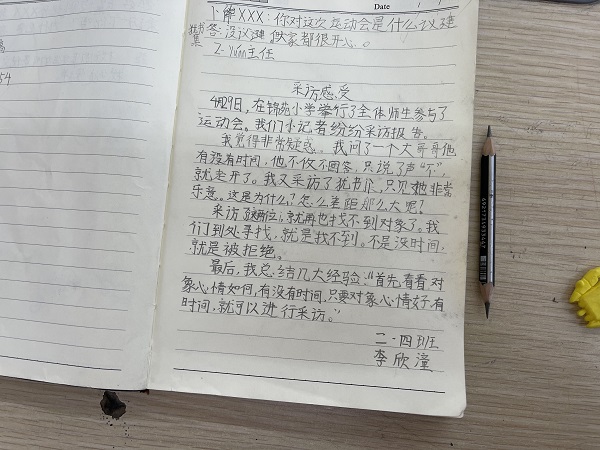 Date
卜解XXX:你对这次运动会是什么议建
答:没议建,大家都很开心。
Z-Yuán主任
54
采访感受
4月29日,在锦苑小学举行了全体师生参与了
运动会。我们小记者纷纷采访报答。
我觉得非常疑惑。我问了一个大哥哥他
有没有时间,他不仅不回答,只说了声“不”,
就走开了。我又采访了犹书记,只见她非常
乐意。这是为什么?怎么差距那么大呢?
采访了这两位,就再也找不到对象了。我
们到处寻找,就是找不到。不是没时间,
就是被拒绝。
最后,我总结几大经验:“首先,看看对
象心情如何,有没有时间,只要对象心情好,有
时间,就可以进行采访。”
二·四班
李欣潼